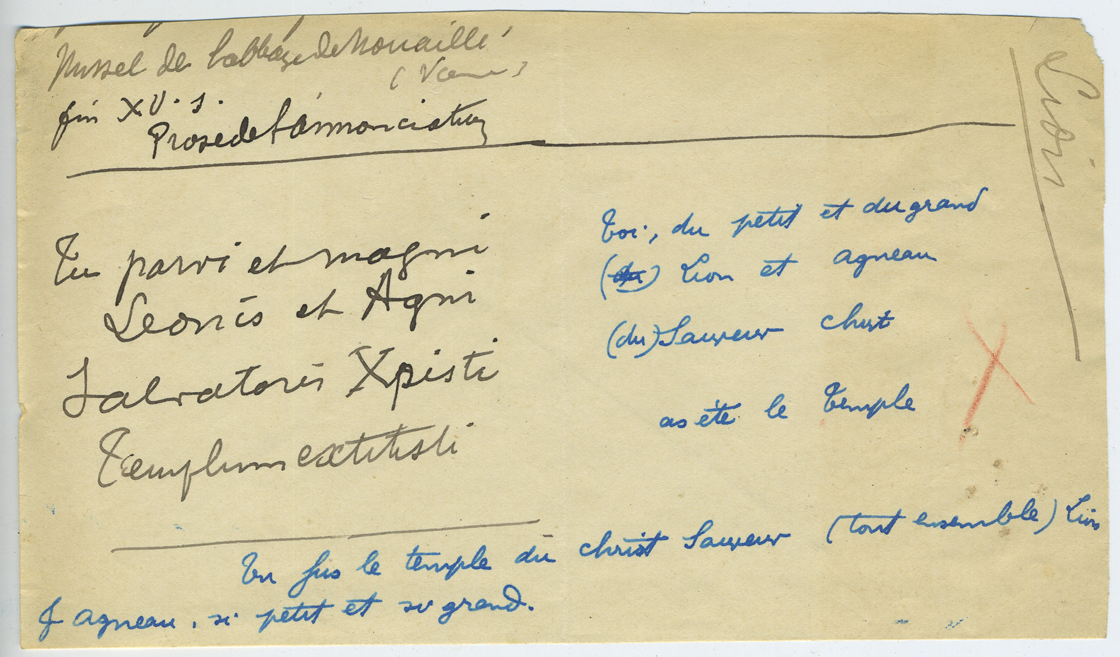 Missel de l'abbaye de Nouaillé
(Vienne)
fin XV. s.
Prose de l'Annonciation
Lion
Tu parvi et magni
Leonis et Agni
Salvatoris Xpisti
Templum extitisti
Toi, du petit et du grand
(du) Lion et agneau
(du) Sauveur christ
as été le Temple
Tu fus le temple du christ Sauveur (tout ensemble) Lion
& agneau, si petit et si grand.